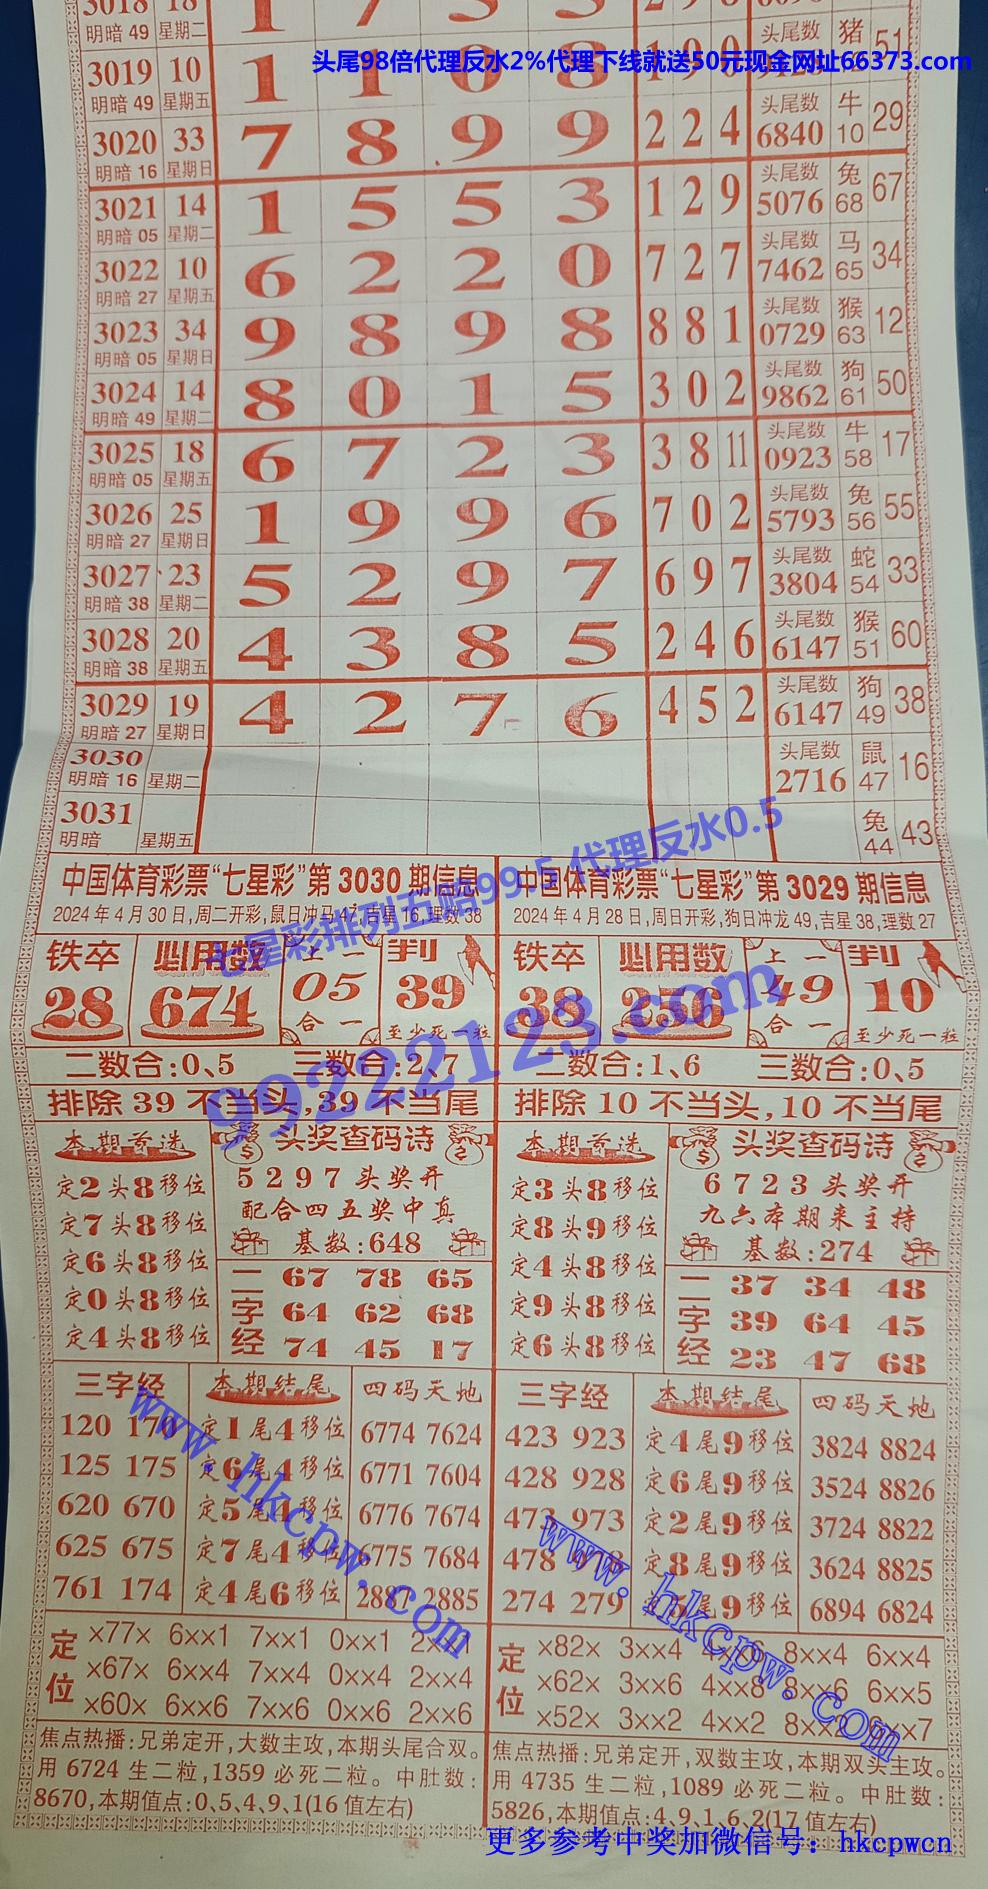 3018 18 1 7 3 3
明暗 49 星期二 头尾数 猪 51
头尾98倍代理反水2%代理下线就送50元现金网址66373.com
3019 10 1 1 0 8 1 9 0
明暗 49 星期五
3020 33 7 8 9 9 2 2 4 头尾数 6840 牛 10 29
明暗 16 星期日
3021 14 1 5 5 3 1 2 9 头尾数 5076 兔 68 67
明暗 05 星期二
3022 10 6 2 2 0 7 2 7 头尾数 7462 马 65 34
明暗 27 星期五
3023 34 9 8 9 8 8 8 1 头尾数 0729 猴 63 12
明暗 05 星期日
3024 14 8 0 1 5 3 0 2 头尾数 9862 狗 61 50
明暗 49 星期二
3025 18 6 7 2 3 3 8 11 头尾数 0923 牛 58 17
明暗 05 星期五
3026 25 1 9 9 6 7 0 2 头尾数 5793 兔 56 55
明暗 27 星期日
3027 23 5 2 9 7 6 9 7 头尾数 3804 蛇 54 33
明暗 38 星期二
3028 20 4 3 8 5 2 4 6 头尾数 6147 猴 51 60
明暗 38 星期五
3029 19 4 2 7 6 4 5 2 头尾数 6147 狗 49 38
明暗 27 星期日
3030 头尾数 2716 鼠 47 16
明暗 16 星期二
3031 兔 44 43
明暗 星期五
七星彩排列五赔99.5 代理反水0.5
99222123.com
中国体育彩票“七星彩”第 3030 期信息
2024 年 4 月 30 日,周二开彩,鼠日冲马 47,吉星 16,理数 38
铁卒 必用数 上一 判
28 674 05 39
合一 至少死一粒
二数合:0、5 三数合:2、7
排除 39 不当头,39 不当尾
本期首选
定2头8移位
定7头8移位
定6头8移位
定0头8移位
定4头8移位
头奖查码诗
5 2 9 7 头奖开
配合四五奖中真
基数:648
二字经
67 78 65
64 62 68
74 45 17
三字经
120 170
125 175
620 670
625 675
761 174
本期结尾
定1尾4移位
定6尾4移位
定5尾4移位
定7尾4移位
定4尾6移位
四码天地
6774 7624
6771 7604
6776 7674
6775 7684
2887 2885
定位
×77× 6××1 7××1 0××1 2××1
×67× 6××4 7××4 0××4 2××4
×60× 6××6 7××6 0××6 2××6
焦点热播:兄弟定开,大数主攻,本期头尾合双。
用 6724 生二粒,1359 必死二粒。中肚数:
8670,本期值点:0、5、4、9、1(16 值左右)
中国体育彩票“七星彩”第 3029 期信息
2024 年 4 月 28 日,周日开彩,狗日冲龙 49,吉星 38,理数 27
铁卒 必用数 上一 判
38 256 49 10
合一 至少死一粒
二数合:1、6 三数合:0、5
排除 10 不当头,10 不当尾
本期首选
定3头8移位
定8头9移位
定4头8移位
定9头8移位
定6头8移位
头奖查码诗
6 7 2 3 头奖开
九六本期来主持
基数:274
二字经
37 34 48
39 64 45
23 47 68
三字经
423 923
428 928
473 973
478 978
274 279
本期结尾
定4尾9移位
定6尾9移位
定2尾9移位
定8尾9移位
尾9移位
四码天地
3824 8824
3524 8826
3724 8822
3624 8825
6894 6824
定位
×82× 3××4 4××6 8××4 6××4
×62× 3××6 4××8 8××6 6××5
×52× 3××2 4××2 8××2 6××7
焦点热播:兄弟定开,双数主攻,本期双头主攻。
用 4735 生二粒,1089 必死二粒。中肚数:
5826,本期值点:4、9、1、6、2(17 值左右)
www.hkcpw.com
www.hkcpw.com
更多参考中奖加微信号：hkcpwcn